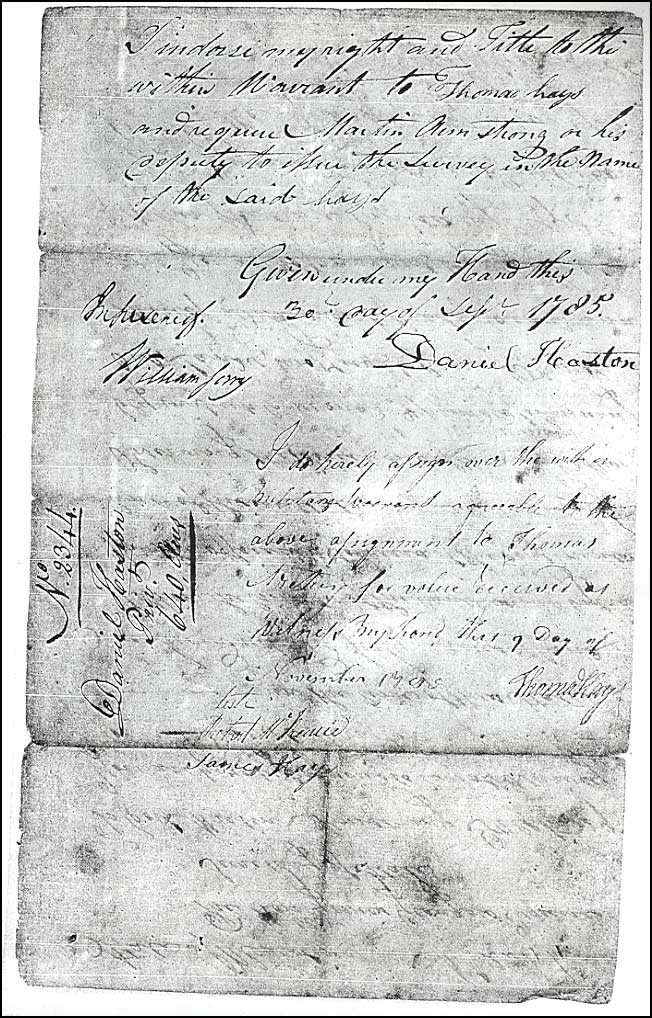 I indorse my right and Title to the
within Warrant to Thomas hays
and require Martin Armstrong or his
deputy to issue the Survey in the Name
of the said hays
Given under my Hand this
30th day of Sepr 1785.
In presence of.
Daniel Heaston
William
I do hereby assign over the within
Military warrant agreeable to the
above assignment to Thomas
for value received as
Witness my hand this 9 Day of
November
Thomas Hays
test
James Hay
No 2344
Daniel Heaston
640 Acres